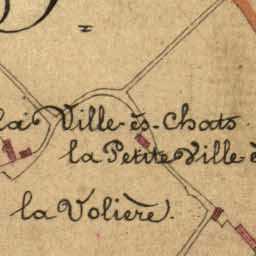 la Ville-ès-Chats
la Petite Ville è
la Volière.